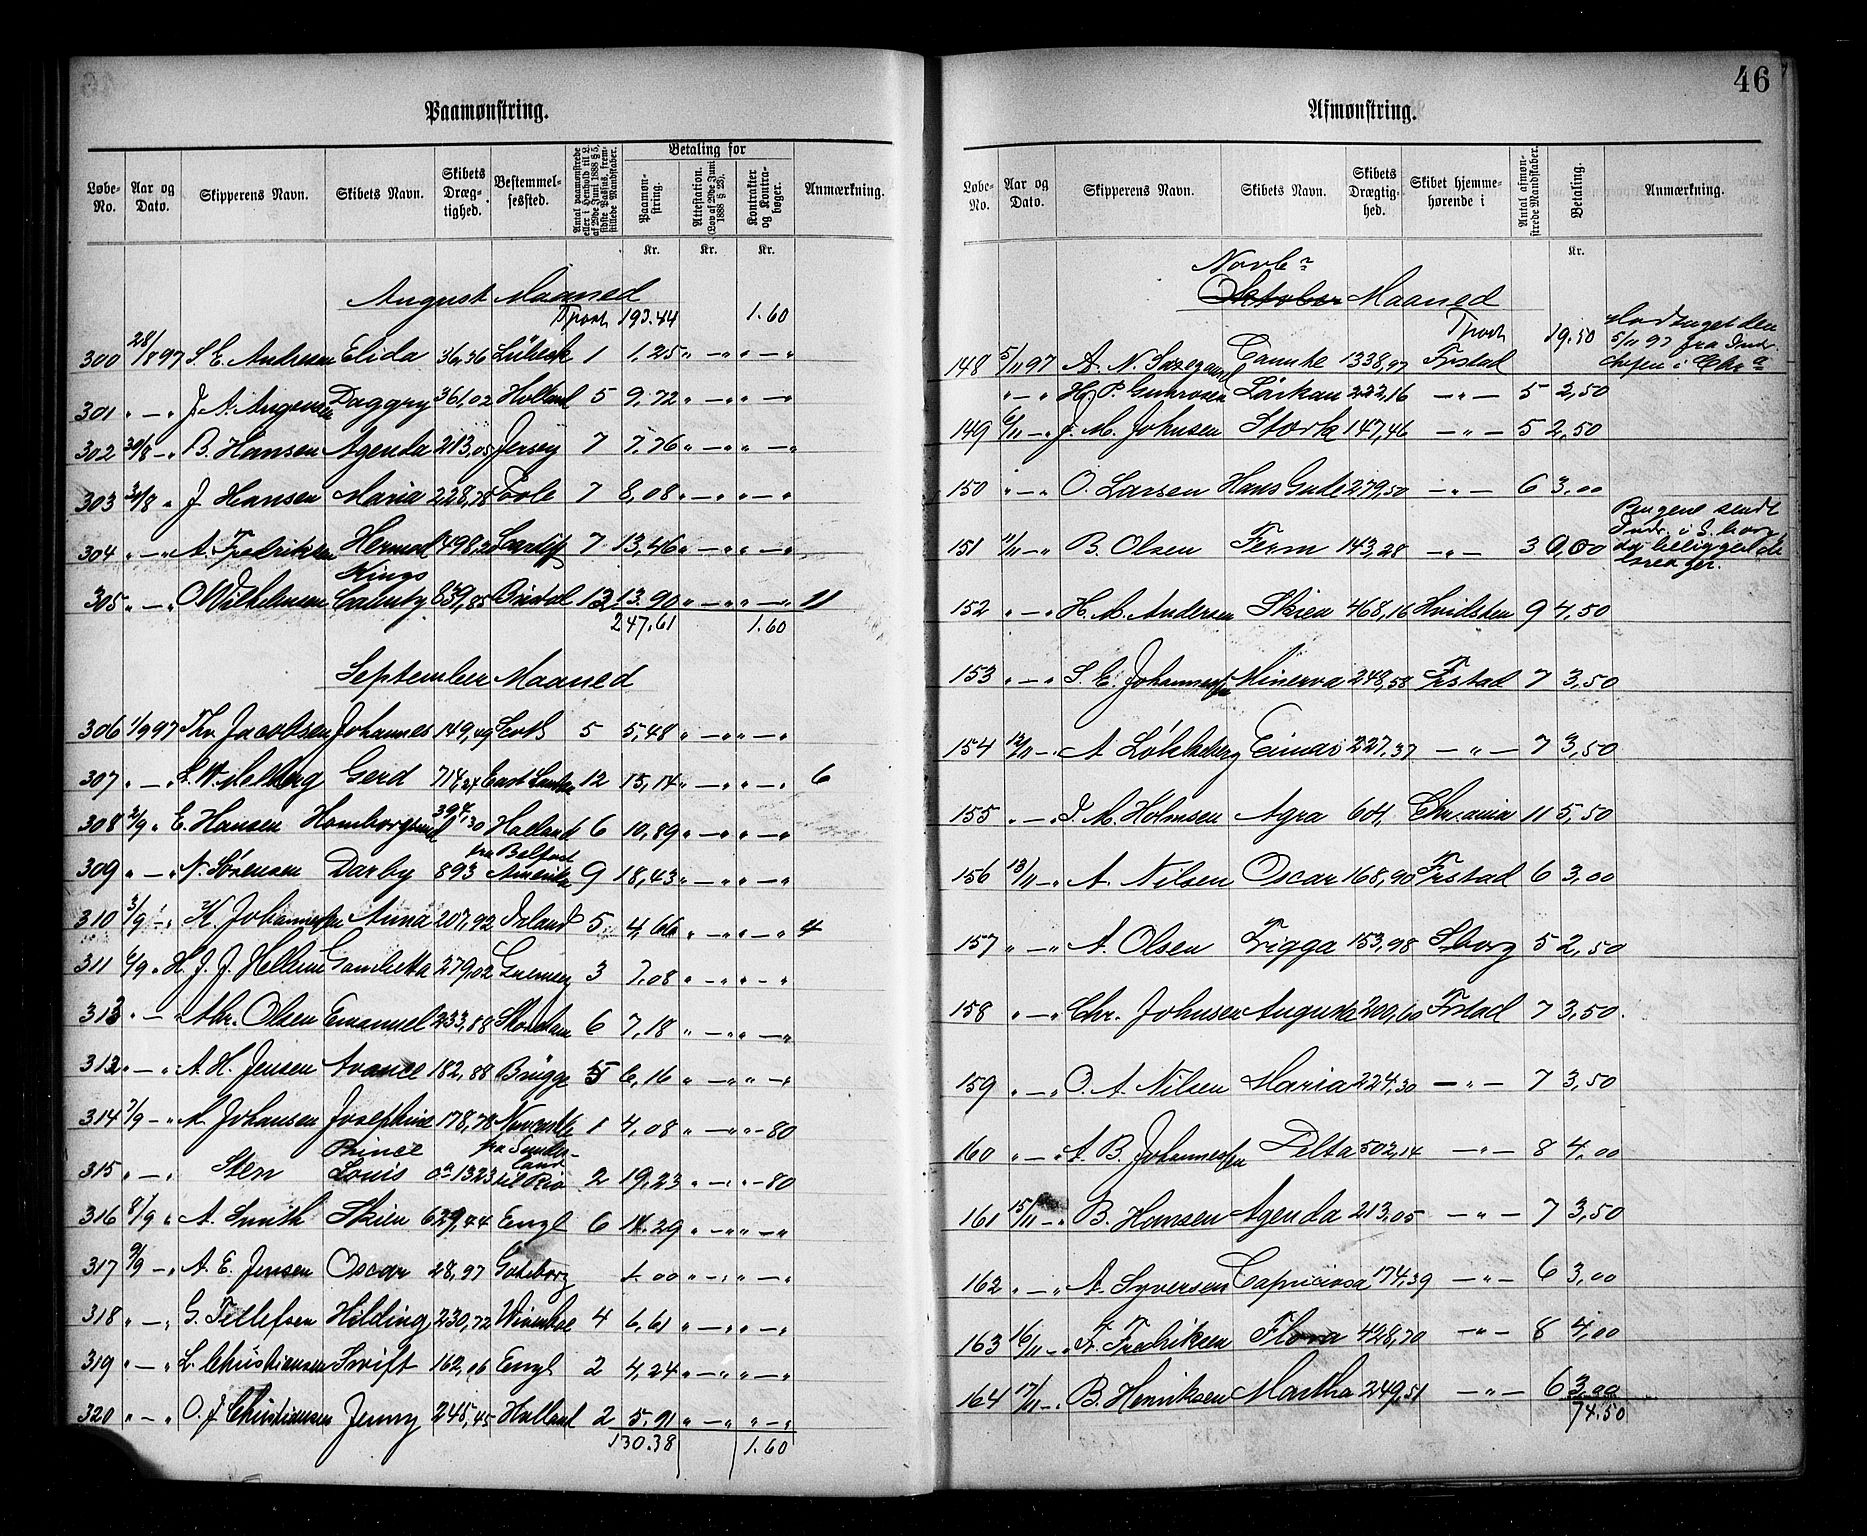 46
Paamønstring.
Løbe-No. Aar og Dato. Skipperens Navn. Skibets Navn. Skibets Dræg-tighed. Bestemmel-sessted. Antal paamønstrede eller i Henhold til L. af 29de Juni 1888 § 5, sidste Passus, frem-stillede Mandskaber. Betaling for Paamøn-string. Attestation. (Lov af 29de Juni 1888 § 23). Kontrakter og Kontra-bøger. Anmærkning.
Kr. Kr. Kr.
August Maaned
Tport 193.44 1.60
300 28/8 97 S. E. Andresen Elida 36,36 Lübeck 1 1,25 " — " " — "
301 " — " J. A. Augensen Daggry 361,02 Holland 5 9,72 " — " " — "
302 30/8 — " B. Hansen Agenda 213,05 Jersey 7 7,76 " — " " — "
303 31/8 " J. Hansen Maria 228,78 Poole 7 8,08 " — " " — "
304 " — " A. Fredriksen Hermod 498,20 Cardiff 7 13,46 " — " " — "
305 " — " O. Wilhelmsen Kings County 839,85 Bristol 13 13.90 " — " " — " 11
247.61 1.60
September Maaned
306 1/9 97 Thv. Jacobsen Johannes 149,09 5 5,48 " — " " — "
307 " — " Gerd 714,24 East London 12 15,14 " — " " — " 6
308 2/9 " E. Hansen Homborgsund 394,30 Holland 6 10,89 " — " " — "
309 " — " N. Sørensen Darby 893 fra Belfast Amerika 9 18,43 " — " " — "
310 3/9 — " K. Johannessen Anna 207,92 Irland 5 4,66 " — " " — " 4
311 6/9 " H. J. J. Hellum Gambetta 279,02 Guernsey 3 7,08 " — " " — "
313 " — " Ahr. Olsen Emanuel 233,88 6 7,18 " — " " — "
312 " — " A. H. Jensen Avance 182,88 Brügge 5 6,16 " — " " — "
314 7/9 — " A. Johansen Josephine 178,78 Newcastle 1 4,08 " — " " — 80
315 " — " Sten Prince Louis ca 1323 fra Sunder-land til Rio 2 19,23 " — " " — 80
316 8/9 " A. Smith Skien 629,44 Engl 6 14.29 " — " " — "
317 9/9 — " A. E. Jensen Oscar 28,97 Goteborg 1.00 " — " " — "
318 " — " G. Tellefsen Hilding 230,72 Wivenhoe 4 6,61 " — " " — "
319 " — " L. Christiansen Svift 162,06 Engl 2 4,24 " — " " — "
320 " — " O. J. Christiansen Jenny 245,45 Holland 2 5.91 " — " " — "
130.38 1.60
Afmønstring.
Løbe-No. Aar og Dato. Skipperens Navn. Skibets Navn. Skibets Drægtig-hed. Skibet hjemme-hørende i Antal afmøn-strede Mandskaber. Betaling. Anmærkning.
Kr.
Novbr
October Maaned
Tport 19.50 Modtaget den
148 5/11 97 A. N. Camilte 1338,97 Frstad 5/11 97 fra Indr. chefen i Chr a
" — " H. P. Gunrosen Lärkan 222,16 — " — 5 2,50
149 6/11 — " J. M. Johnsen Stork 147,46 — " — 5 2,50
150 " — " O. Larsen Hans Gude 279,50 — " — 6 3,00
151 11/11 — " B. Olsen Ferm 143,28 — " — 3 0,00 Pengene sendt Indr. i S.borg, da beliggende
152 " — " H. A. Andersen Skien 468,16 Hvidsten 9 4,50
153 " — " S. E. Johannessen Minerva 248,58 Frstad 7 3,50
154 12/11 — " A. Løkkeberg Einar 227,37 — " — 7 3,50
155 " — " J. M. Holmsen Agra 601, Chr.ania 11 5,50
156 13/11 — " A. Nilsen Oscar 168,90 Frstad 6 3,00
157 " — " A. Olsen Frigga 153,98 S.borg 5 2,50
158 " — " Chr. Johnsen Augusta 209,60 Frstad 7 3,50
159 " — " O. A. Nilsen Maria 224,30 — " — 7 3,50
160 " — " A. B. Johannessen Delta 502,14 — " — 8 4,00
161 15/11 — " B. Hansen Agenda 213,05 — " — 7 3,50
162 " — " A. Syversen Capriciosa 174,39 — " — 6 3,00
163 16/11 — " F. Fredriksen Flora 428,70 — " — 8 4,00
164 17/11 — " B. Henriksen Martha 249,51 — " — 6 3,00
74.50